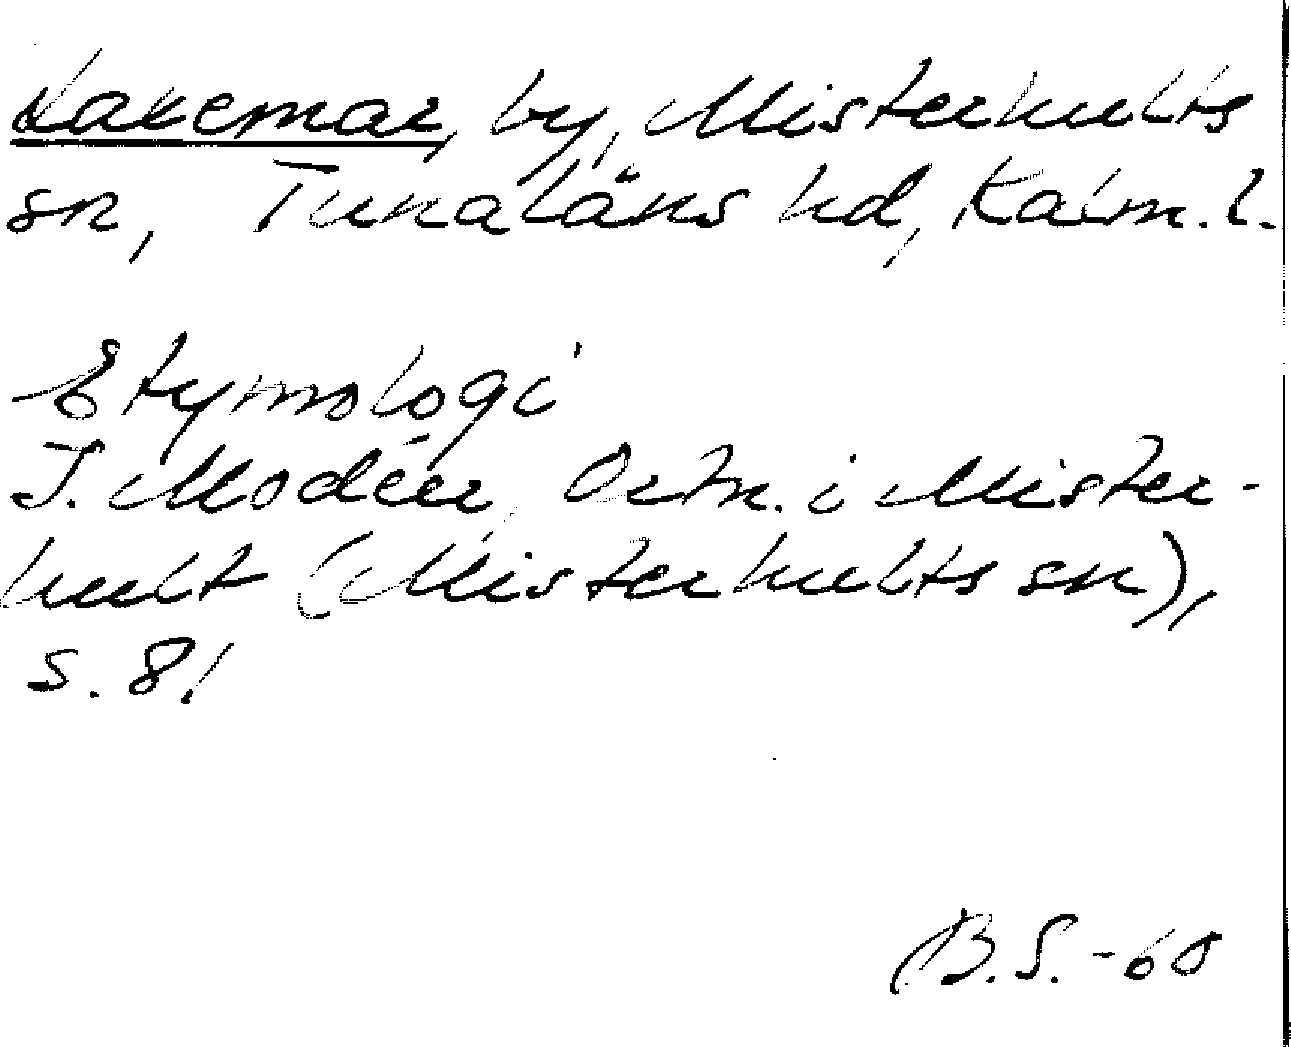 Lakemar, by, Misterhults
sn, Tunaläns hd, Kalm. l.
Etymologi
I. Modéer, Ortn. i Mister-
hult (Misterhults sn),
s. 81
B.S. -60